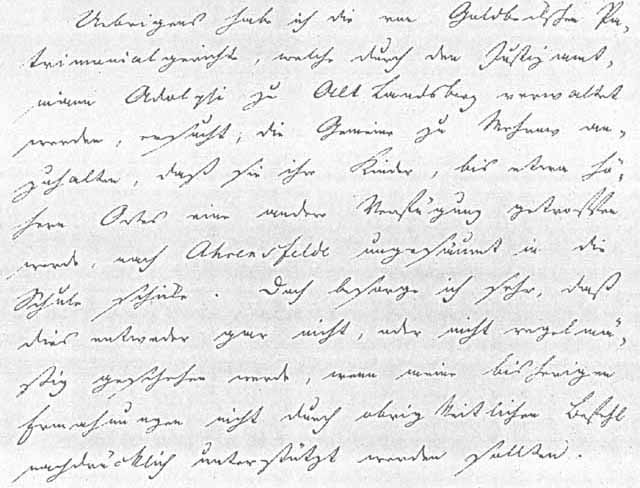 Uebrigens habe ich die von Goldbeckschen Pa-
trimonialgerichte, welche durch den Justizamt-
mann Adolphi zu Alt Landsberg verwaltet
werden, ersucht, die Gemeine zu Mehrow an-
zuhalten, daß sie ihre Kinder, bis etwa hö-
hern Ortes eine andere Verfügung getroffen
werde, nach Ahrensfelde ungesäumt in die
Schule schicke. Doch besorge ich sehr, daß
dies entweder gar nicht, oder nicht regelmä-
ßig geschehen werde, wenn meine bisherigen
Ermahnungen nicht durch obrigkeitlichen Befehl
nachdrücklich unterstützt werden sollten.